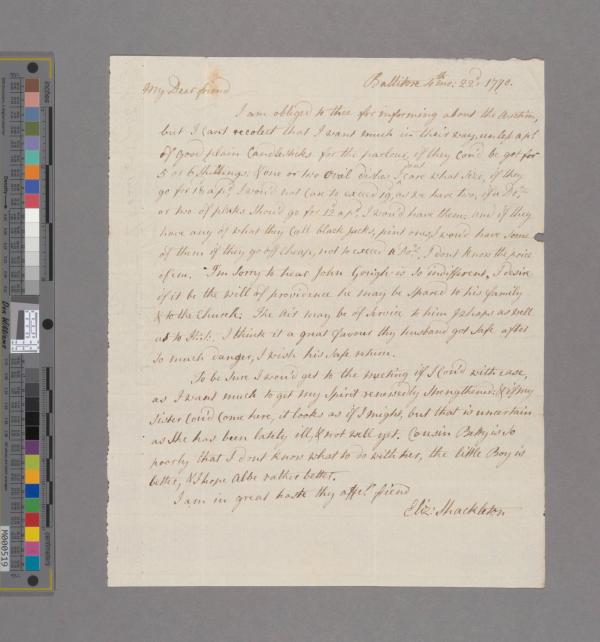 Ballitore 4th mo: 22d 1770.
My Dear friend
I am obliged to thee for informing about the Auction,
but I cant recolect that I want much in their way, unless a pr
of good plain Candlesticks for the parlour, if they cou'd be got for
5 or 6 shillings; & one or two oval dishes I dont care what size, if they
go for 18 a pd I wou'd not care to exceed 19, as we have two, if a Doz
or two of plates should go for 12d a pd I wou'd have them, and if they
have any of what they call black jacks, pint ones, I wou'd have some
of them if they go off cheap, not to exceed a Doz. I dont know the price
of em. I'm sorry to hear John Gough is so indifferent, I desire
if it be the will of providence he may be spared to his family
& to the Church; The air may be of service to him perhaps as well
as to I think it a great favour thy husband got safe after
so much danger, I wish his safe return.
To be sure I wou'd get to the meeting if I cou'd with ease,
as I want much to get my Spirit renewedly strengthened, & if my
Sister cou'd come here, it looks as if I might, but that is uncertain
as she has been lately ill, & not well yet. Cousin Betty is so
poorly that I dont know what to do with her, the little Boy is
better, & I hope Abbe rather better.
I am in great haste thy affet friend
Eliz: Shackleton
inches
centimetres
M000519